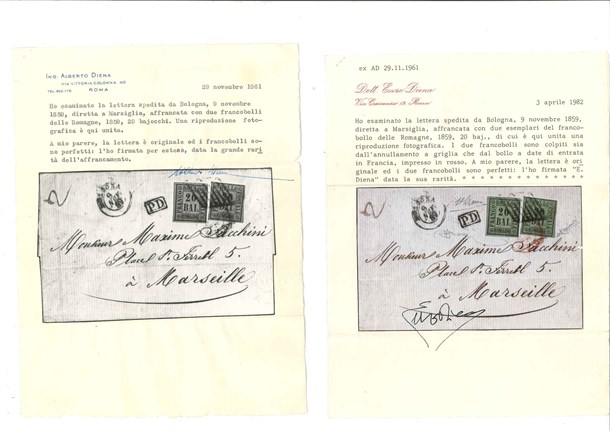 ING. ALBERTO DIENA
VIA VITTORIA COLONNA, 40
ROMA
29 novembre 1961
Ho esaminato la lettera spedita da Bologna, 9 novembre
1859, diretta a Marsiglia, affrancata con due francobolli
delle Romagne, 1859, 20 bajocchi. Una riproduzione foto-
grafica è qui unita.
A mio parere, la lettera è originale ed i francobolli so=
no perfetti: l'ho firmata per esteso, data la grande rari
tà dell'affrancamento.
P.D.
20
BAI
Monsieur Maxime Pacchini
5.
à Marseille
ex AD 29.11.1961
Dott. Enzo Diena
3 aprile 1982
Ho esaminato la lettera spedita da Bologna, 9 novembre 1859,
diretta a Marsiglia, affrancata con due esemplari del franco-
bollo delle Romagne, 1859, 20 baj., di cui è qui unita una
riproduzione fotografica. I due francobolli sono colpiti sia
dall'annullamento a griglia che dal bollo a date di entrata
in Francia, impresso in rosso. A mio parere, la lettera è ori
ginale ed i due francobolli sono perfetti: l'ho firmata "E.
Diena" data la sua rarità. * * * * * * * * * * * * * * * * *
P.D.
20
BAI
Monsieur Maxime Pacchini
5.
à Marseille